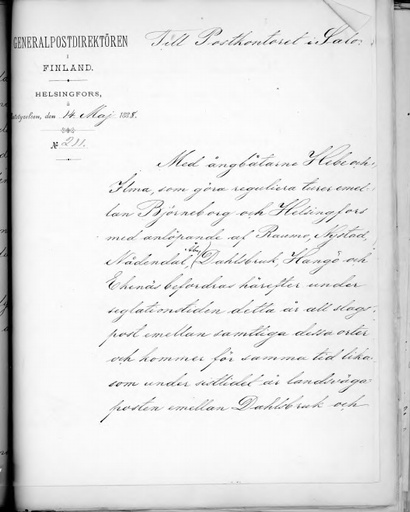 GENERALPOSTDIREKTÖREN
I
FINLAND.
HELSINGFORS,
den 14 Maj 1888.
№ 211.
Till Postkontoret i Salo.
Med ångbåtarne Hebe och
Ilma, som göra reguliera turer emel-
lan Björneborg och Helsingfors
med anlöpande af Raumo, Nystad,
Nådendal, Åbo, Dahlsbruk, Hangö och
Ekenäs befordras härefter under
seglationstiden detta år all slags
post emellan samtliga dessa orter
och kommer för samma tid lika-
som under sistlidet år landsvägs-
posten emellan Dahlsbruk och